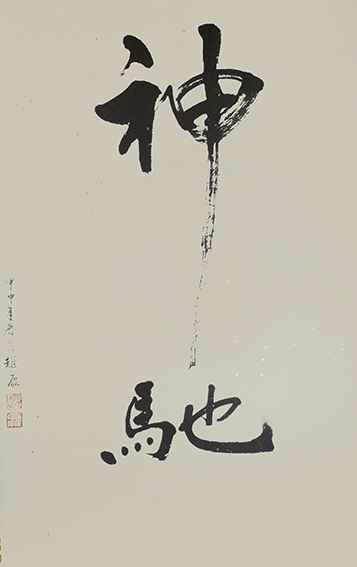 神馳
甲申年春 趙磊